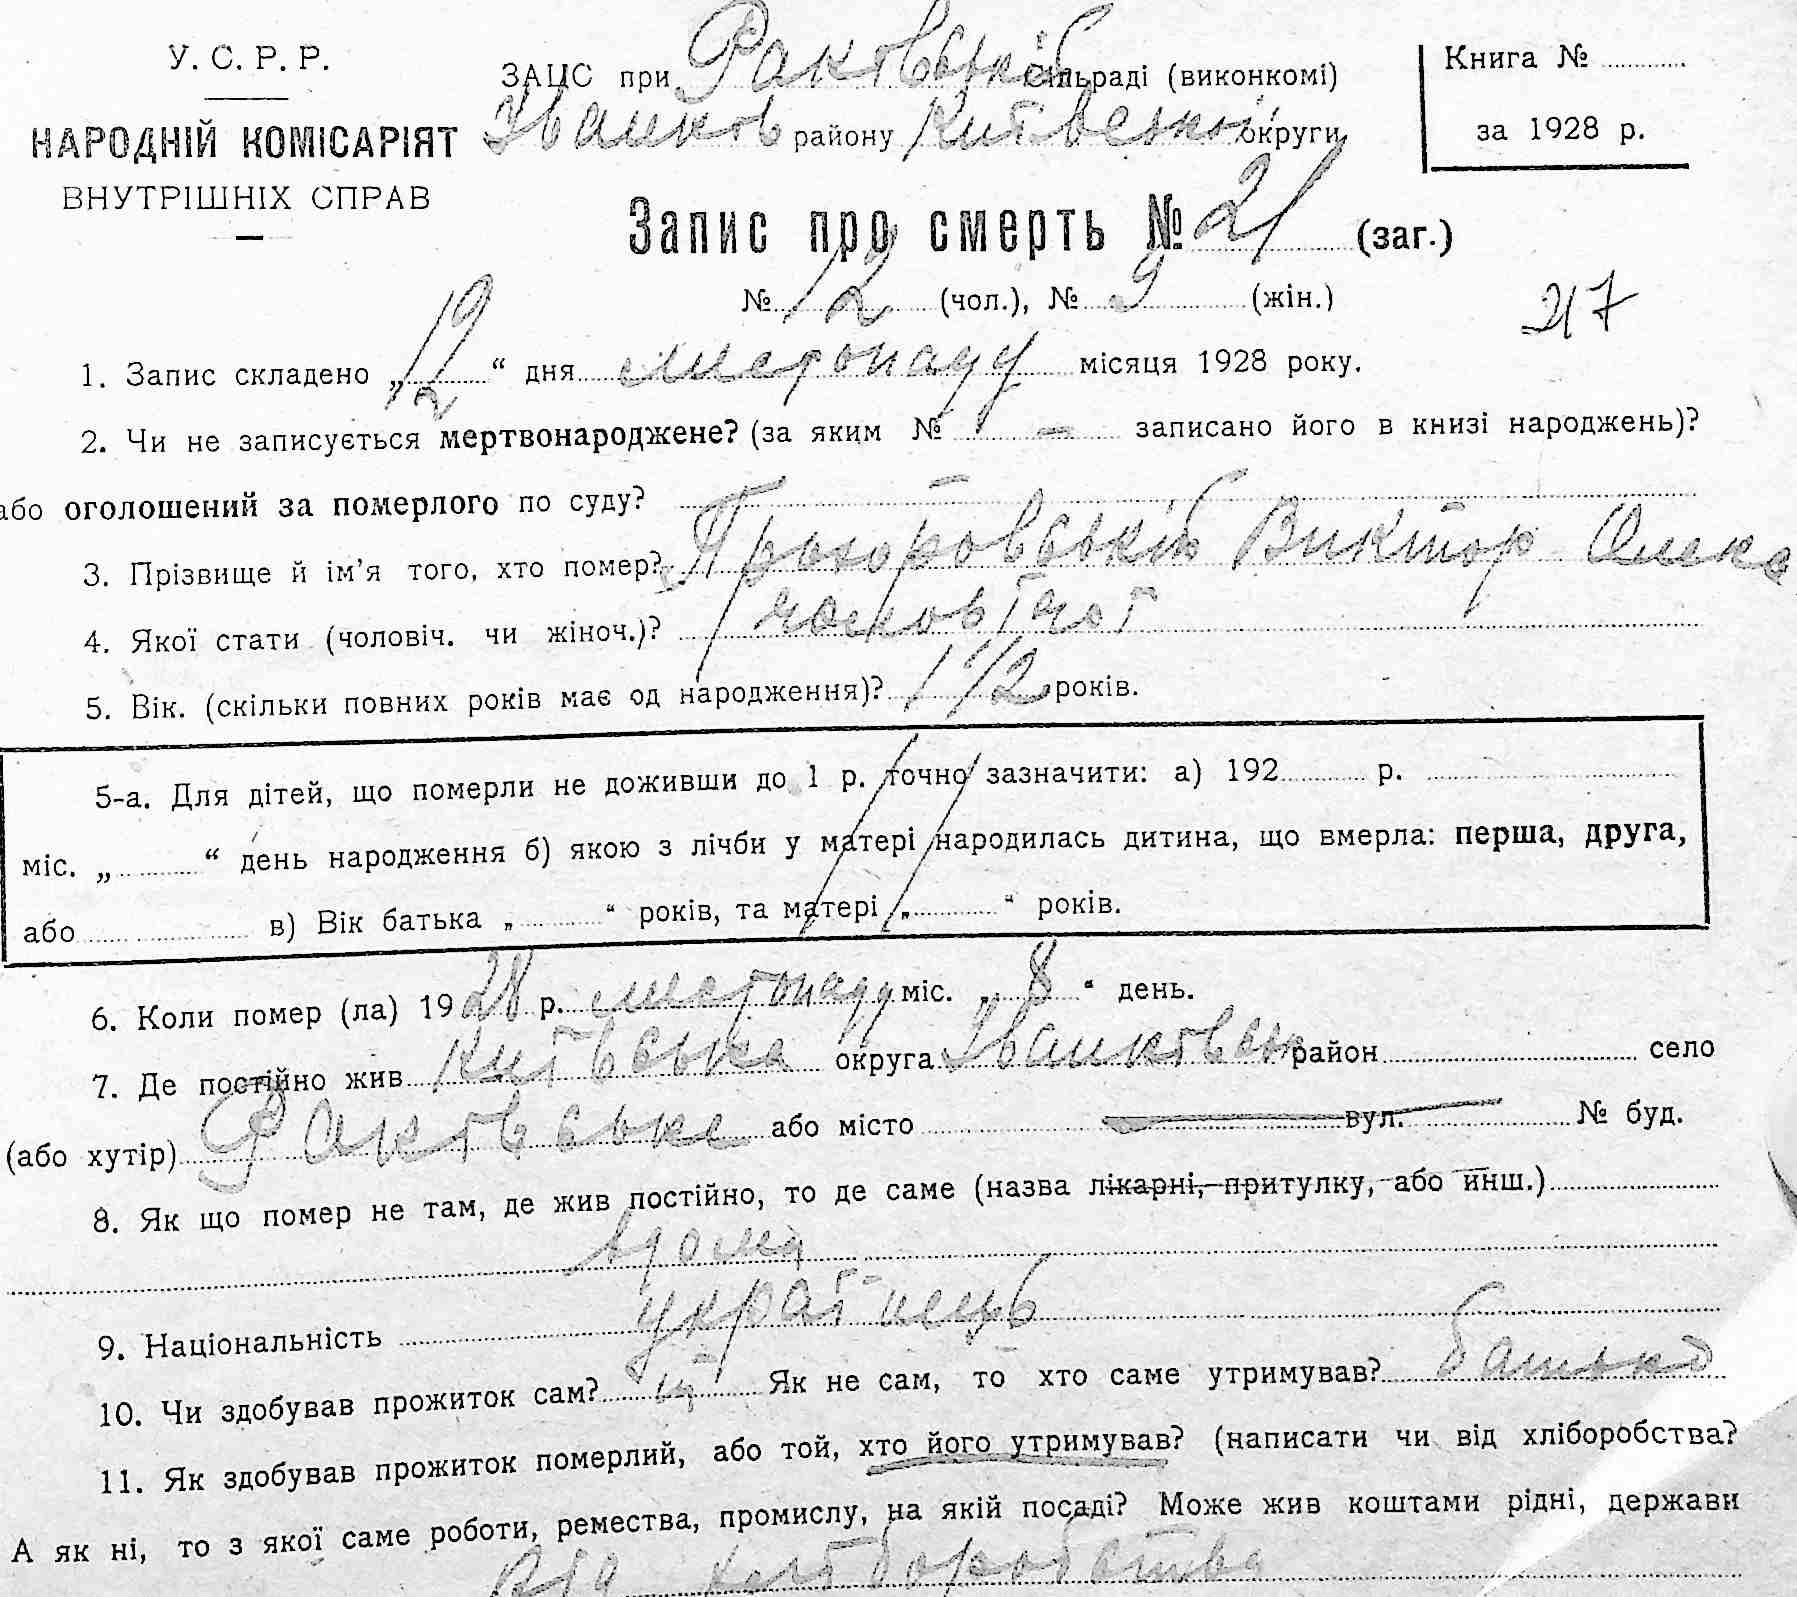 У. С. Р. Р.
НАРОДНІЙ КОМІСАРІЯТ
ВНУТРІШНІХ СПРАВ
ЗАЦС при Раковській сільраді (виконкомі)
Іванков району Київської округи
Книга №
за 1928 р.
Запис про смерть № 21 (заг.)
№ 12 (чол.), № 9 (жін.)
217
1. Запис складено „12“ дня листопаду місяця 1928 року.
2. Чи не записується мертвонароджене? (за яким № — записано його в книзі народжень)?
або оголошений за померлого по суду? —
3. Прізвище й ім'я того, хто помер? Прохоровський Виктор Олекс
4. Якої стати (чоловіч. чи жіноч.)? чоловічої
5. Вік. (скільки повних років має од народження)? 1 1/2 років.
5-а. Для дітей, що померли не доживши до 1 р. точно зазначити: а) 192 р.
міс. „ “ день народження б) якою з лічби у матері народилась дитина, що вмерла: перша, друга,
або в) Вік батька „ “ років, та матері „ “ років.
6. Коли помер (ла) 1928 р. листопаду міс. „8“ день.
7. Де постійно жив Київська округа Іванковськ район село
(або хутір) Раковське або місто вул. № буд.
8. Як що помер не там, де жив постійно, то де саме (назва лікарні, притулку, або инш.)
вдома
9. Національність українець
10. Чи здобував прожиток сам? ні Як не сам, то хто саме утримував? батько
11. Як здобував прожиток померлий, або той, хто його утримував? (написати чи від хліборобства?
А як ні, то з якої саме роботи, ремества, промислу, на якій посаді? Може жив коштами рідні, держави
від хліборобства